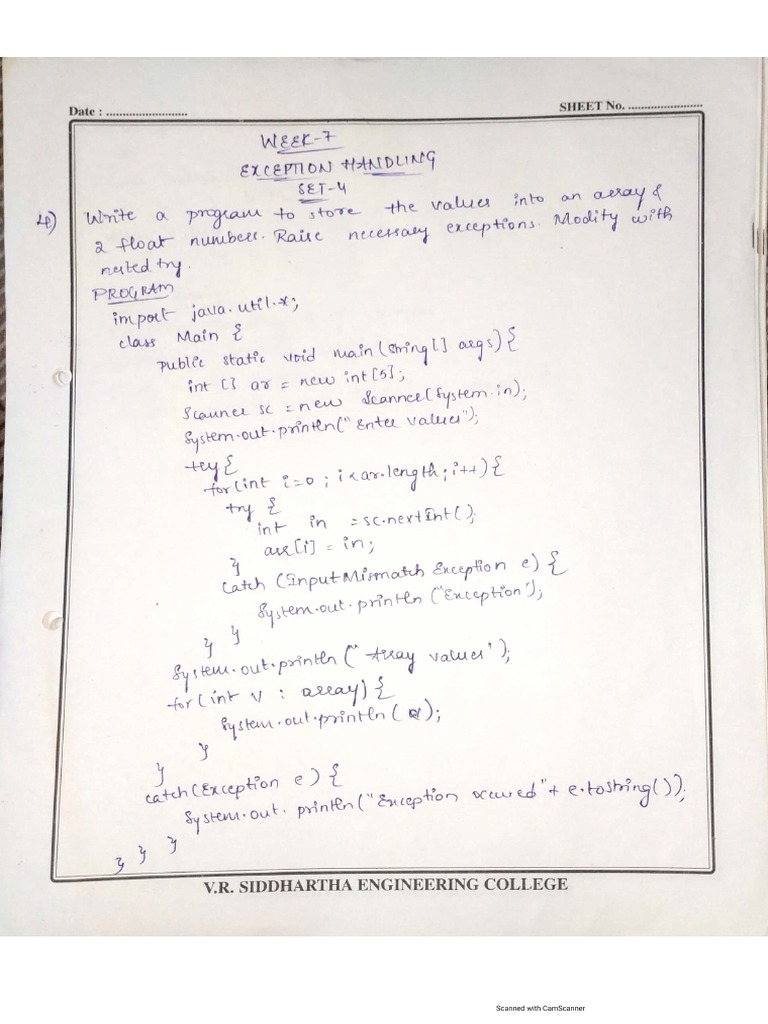 Date : ........................ SHEET No. .......................
WEEK-7
EXCEPTION HANDLING
SET-4
4) Write a program to store the values into an array &
2 float numbers. Raise necessary exceptions. Modity with
nested try.
PROGRAM
import java.util.*;
class Main {
public static void main(String[] args){
int [] ar = new int[5];
Scanner sc = new Scanner(System.in);
System.out.println("Enter values");
try{
for(int i=0 ; i<ar.length ; i++){
try {
int in = sc.nextInt();
arr[i] = in;
}
catch (InputMismatch Exception e) {
System.out.println ("Exception");
} }
System.out.println ("Array values");
for(int v : array) {
System.out.println( );
}
}
catch(Exception e) {
System.out. println("Exception occured"+ e.tostring());
} } }
V.R. SIDDHARTHA ENGINEERING COLLEGE
Scanned with CamScanner